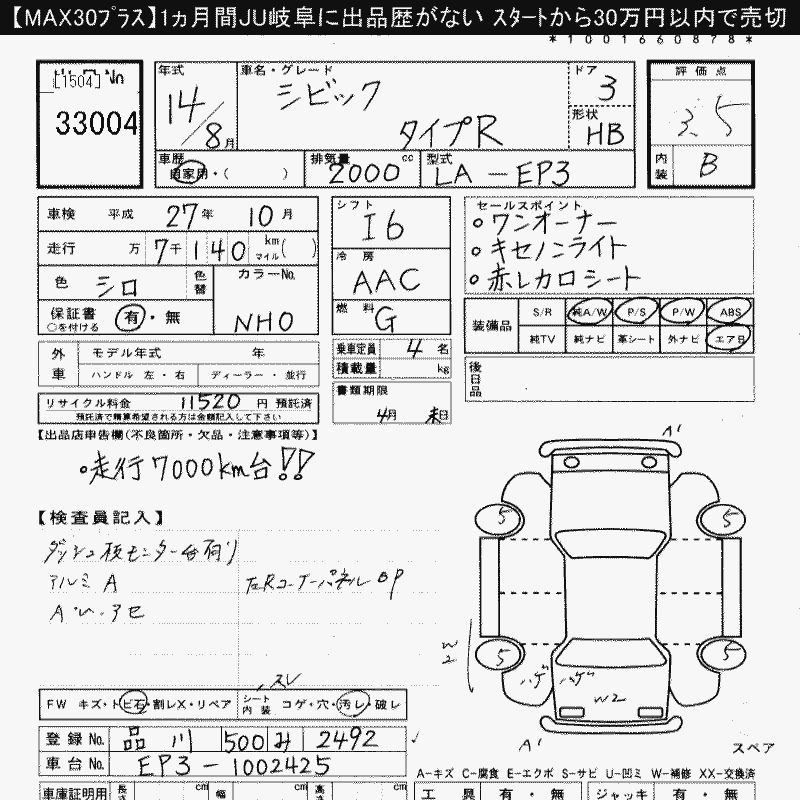 【MAX30ﾌﾟﾗｽ】1ヵ月間JU岐阜に出品歴がない ｽﾀｰﾄから30万円以内で売切
*1001660878*
[1504]
33004
年式 14/8月
車名・グレード シビック タイプR
ドア 3
形状 HB
評価点 3.5
内装 B
車歴 自家用・( )
排気量 2000 cc
型式 LA-EP3
車検 平成 27年 10月
走行 万 7千140 km マイル( )
色 シロ 色替
カラーNo. NHO
保証書 ○を付ける 有・無
シフト I6
冷房 AAC
燃料 G
セールスポイント
○ワンオーナー
○キセノンライト
○赤レカロシート
装備品 S/R 純A/W P/S P/W ABS
純TV 純ナビ 革シート 外ナビ エアB
後日品
外車 モデル年式 年
ハンドル 左・右 ディーラー・並行
乗車定員 4 名
積載量 kg
書類期限 4月 末日
リサイクル料金 11520 円 預託済
預託済で精算希望される方は金額記入して下さい
【出品店申告欄(不良箇所・欠品・注意事項等)】
○走行7000km台!!
【検査員記入】
ダッシュ板モニター台有り
アルミ A
左Rコーナーパネル BP
A'
5 5
5 5
W2
ハゲ ハゲ
W2
A'
スレ
FW キズ・トビ石・割レX・リペア
シート内装 コゲ・穴・汚レ・破レ
登録No. 品川 500 み 2492
車台No. EP3-1002425
スペア
A-キズ C-腐食 E-エクボ S-サビ U-凹ミ W-補修 XX-交換済
車庫証明用 長さ cm 幅 cm 高さ cm
工具 有・無 ジャッキ 有・無